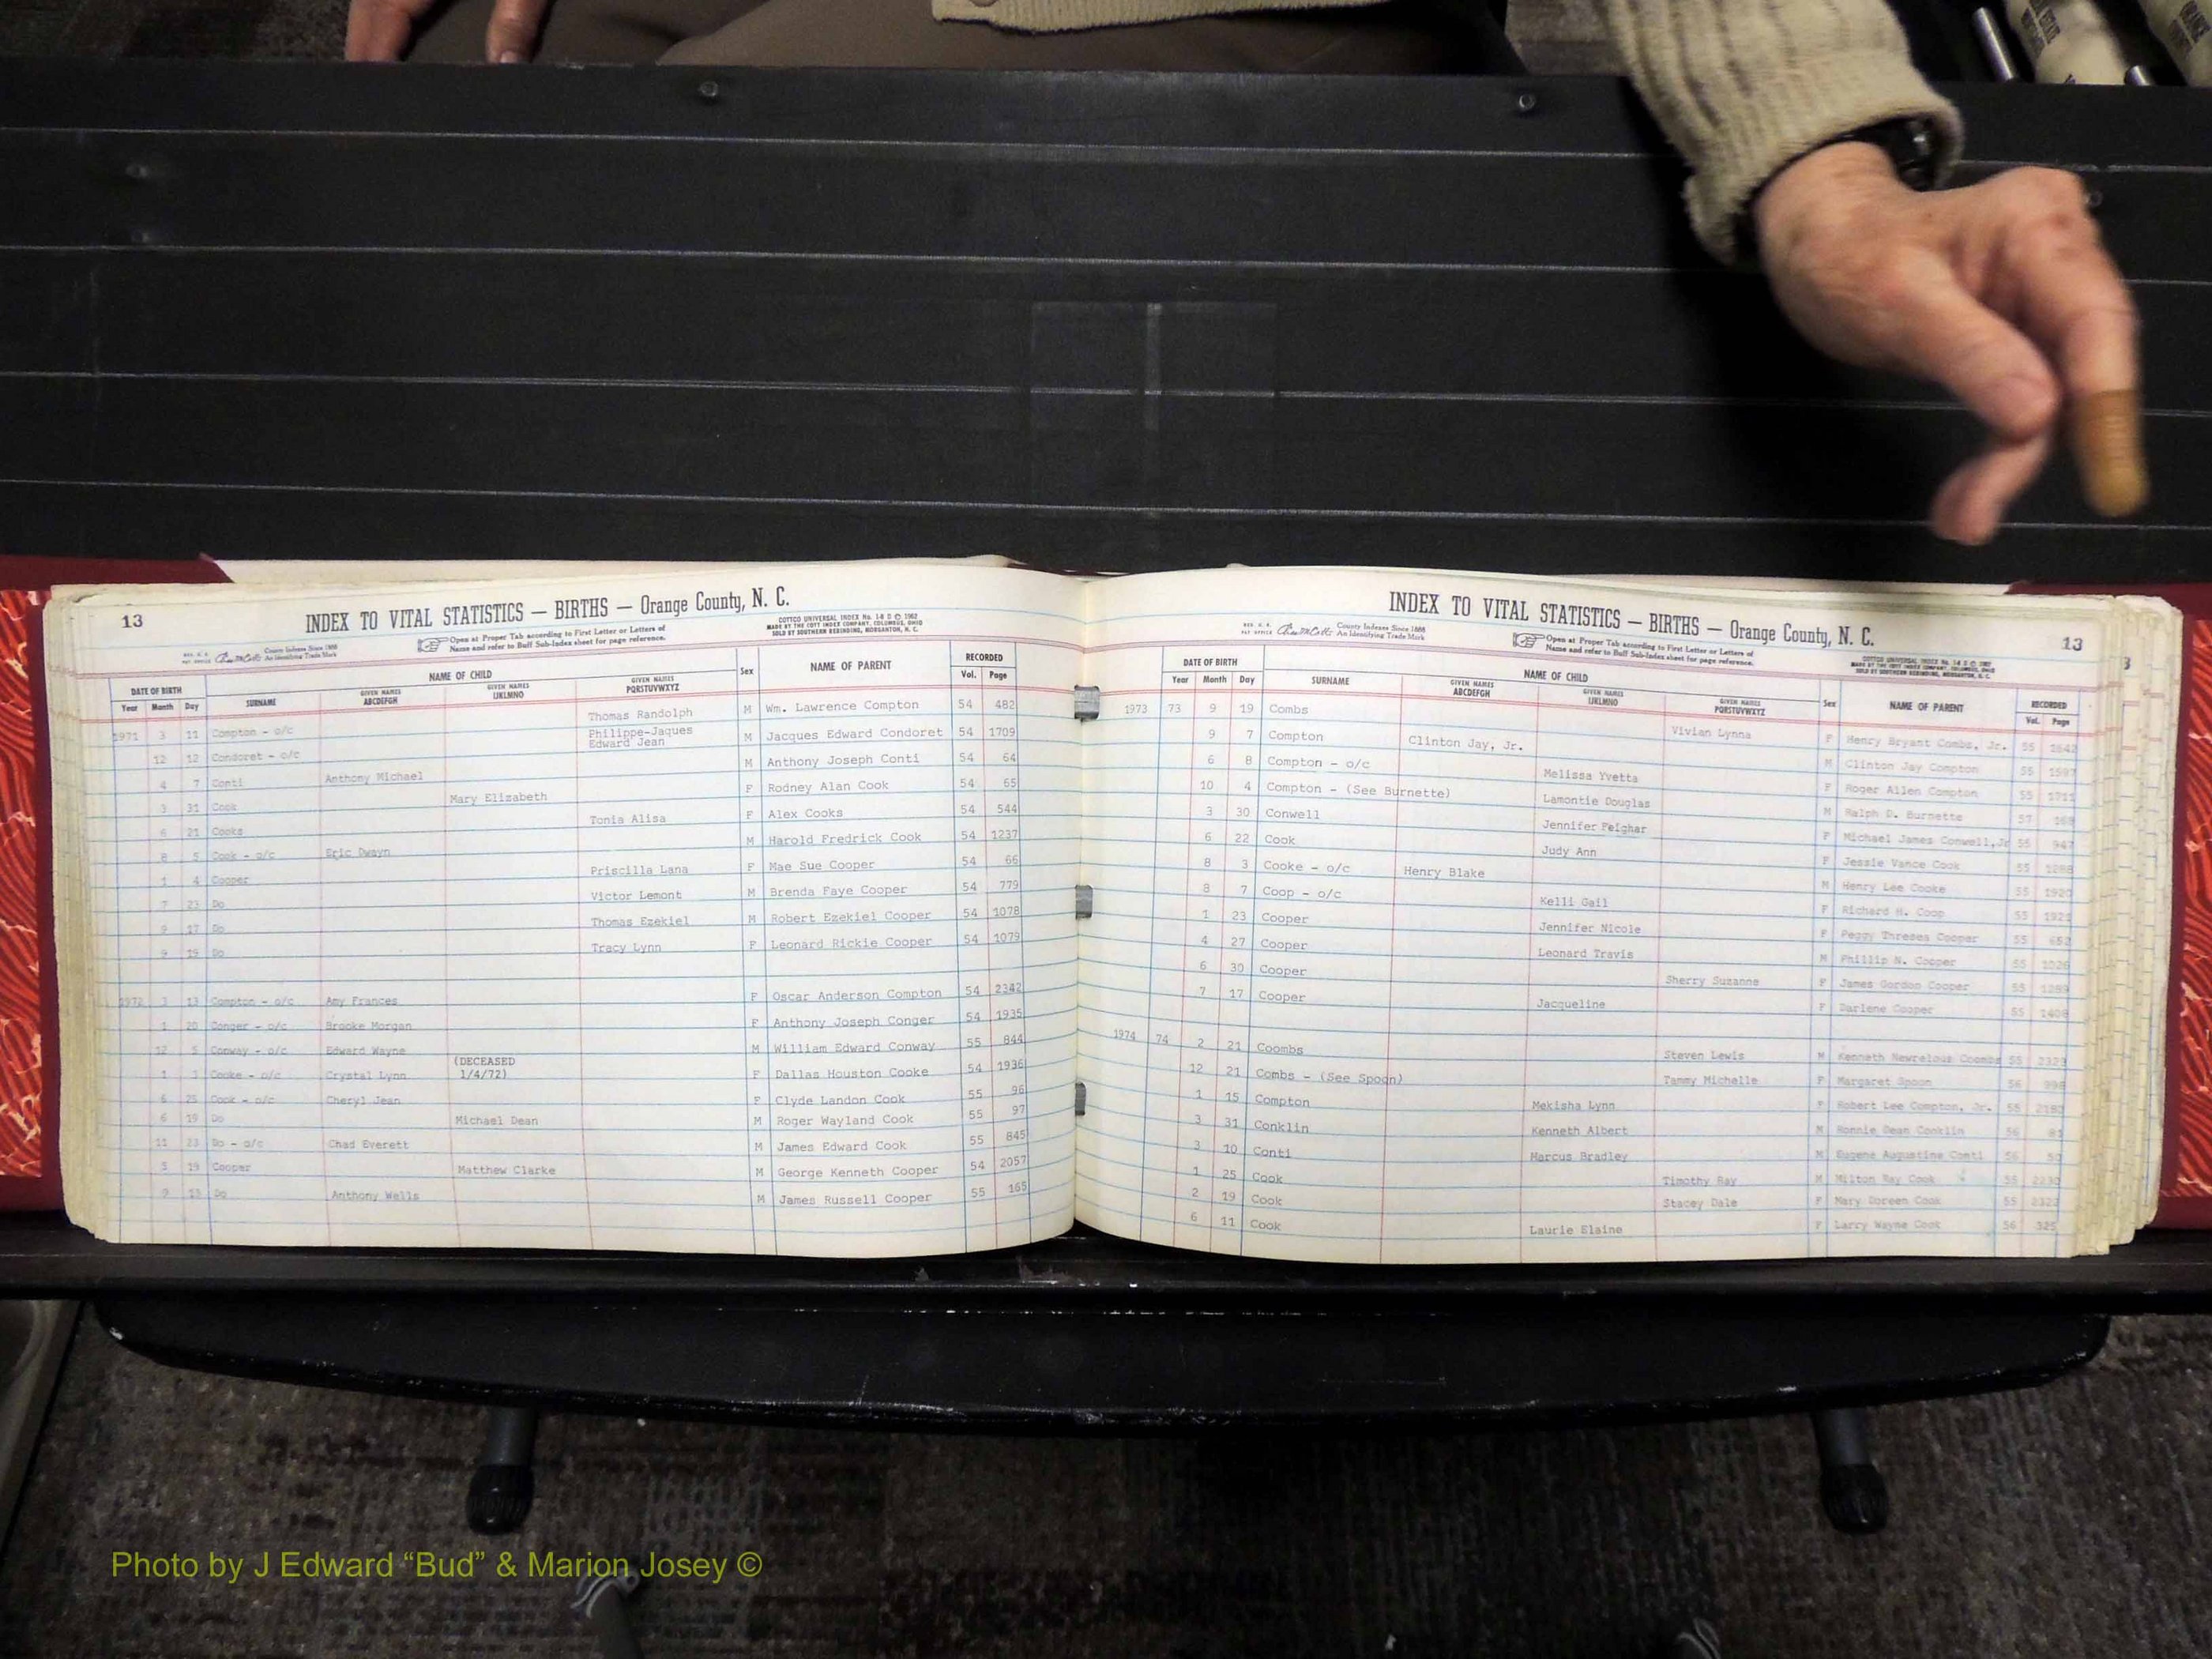 13
INDEX TO VITAL STATISTICS — BIRTHS — Orange County, N. C.
COTTCO UNIVERSAL INDEX No. 1-8 D © 1962
MADE BY THE COTT INDEX COMPANY, COLUMBUS, OHIO
SOLD BY SOUTHERN REBINDING, MORGANTON, N. C.
County Indexes Since 1888
An Identifying Trade Mark
Open at Proper Tab according to First Letter or Letters of
Name and refer to Buff Sub-Index sheet for page reference.
DATE OF BIRTH NAME OF CHILD Sex NAME OF PARENT RECORDED
Year Month Day SURNAME GIVEN NAMES ABCDEFGH GIVEN NAMES IJKLMNO GIVEN NAMES PQRSTUVWXYZ Vol. Page
1971 3 11 Compton - o/c Thomas Randolph M Wm. Lawrence Compton 54 482
12 12 Condoret - o/c Philippe-Jaques Edward Jean M Jacques Edward Condoret 54 1709
4 7 Conti Anthony Michael M Anthony Joseph Conti 54 64
3 31 Cook Mary Elizabeth F Rodney Alan Cook 54 65
6 21 Cooks Tonia Alisa F Alex Cooks 54 544
8 5 Cook - o/c Eric Dwayn M Harold Fredrick Cook 54 1237
1 4 Cooper Priscilla Lana F Mae Sue Cooper 54 66
7 23 Do Victor Lemont M Brenda Faye Cooper 54 779
9 17 Do Thomas Ezekiel M Robert Ezekiel Cooper 54 1078
9 15 Do Tracy Lynn F Leonard Rickie Cooper 54 1079
1972 3 13 Compton - o/c Amy Frances F Oscar Anderson Compton 54 2342
1 20 Conger - o/c Brooke Morgan F Anthony Joseph Conger 54 1935
12 5 Conway - o/c Edward Wayne M William Edward Conway 55 844
1 3 Cooke - o/c Crystal Lynn (DECEASED 1/4/72) F Dallas Houston Cooke 54 1936
6 25 Cook - o/c Cheryl Jean F Clyde Landon Cook 55 96
6 19 Do Michael Dean M Roger Wayland Cook 55 97
11 23 Do - o/c Chad Everett M James Edward Cook 55 845
5 19 Cooper Matthew Clarke M George Kenneth Cooper 54 2057
9 Do Anthony Wells M James Russell Cooper 55 165
INDEX TO VITAL STATISTICS — BIRTHS — Orange County, N. C.
13
County Indexes Since 1888
An Identifying Trade Mark
Open at Proper Tab according to First Letter or Letters of
Name and refer to Buff Sub-Index sheet for page reference.
DATE OF BIRTH NAME OF CHILD Sex NAME OF PARENT RECORDED
Year Month Day SURNAME GIVEN NAMES ABCDEFGH GIVEN NAMES IJKLMNO GIVEN NAMES PQRSTUVWXYZ Vol. Page
1973 73 9 19 Combs Vivian Lynna F Henry Bryant Combs, Jr. 55 1642
9 7 Compton Clinton Jay, Jr. M Clinton Jay Compton 55 1597
6 8 Compton - o/c Melissa Yvetta F Roger Allen Compton 55 1711
10 4 Compton - (See Burnette) Lamontie Douglas M Ralph D. Burnette 57 168
3 30 Conwell Jennifer Feighar F Michael James Conwell, Jr 55 947
6 22 Cook Judy Ann F Jessie Vance Cook 55 1288
8 3 Cooke - o/c Henry Blake M Henry Lee Cooke 55 1920
8 7 Coop - o/c Kelli Gail F Richard H. Coop 55 1921
1 23 Cooper Jennifer Nicole F Peggy Threses Cooper 55 652
4 27 Cooper Leonard Travis M Phillip N. Cooper 55
6 30 Cooper Sherry Suzanne F James Gordon Cooper 55 1289
7 17 Cooper Jacqueline F Darlene Cooper 55 1408
1974 74 2 21 Coombs Steven Lewis M Kenneth Newrelous Coombs 55 2323
12 21 Combs - (See Spoon) Tammy Michelle F Margaret Spoon 56 998
1 15 Compton Mekisha Lynn F Robert Lee Compton, Jr. 55 2182
3 31 Conklin Kenneth Albert M Ronnie Dean Conklin 56
3 10 Conti Marcus Bradley M Eugene Augustine Conti 56
1 25 Cook Timothy Ray M Milton Ray Cook 55 2230
2 19 Cook Stacey Dale F Mary Doreen Cook 55 2322
6 11 Cook Laurie Elaine F Larry Wayne Cook 56 325
Photo by J Edward “Bud” & Marion Josey ©